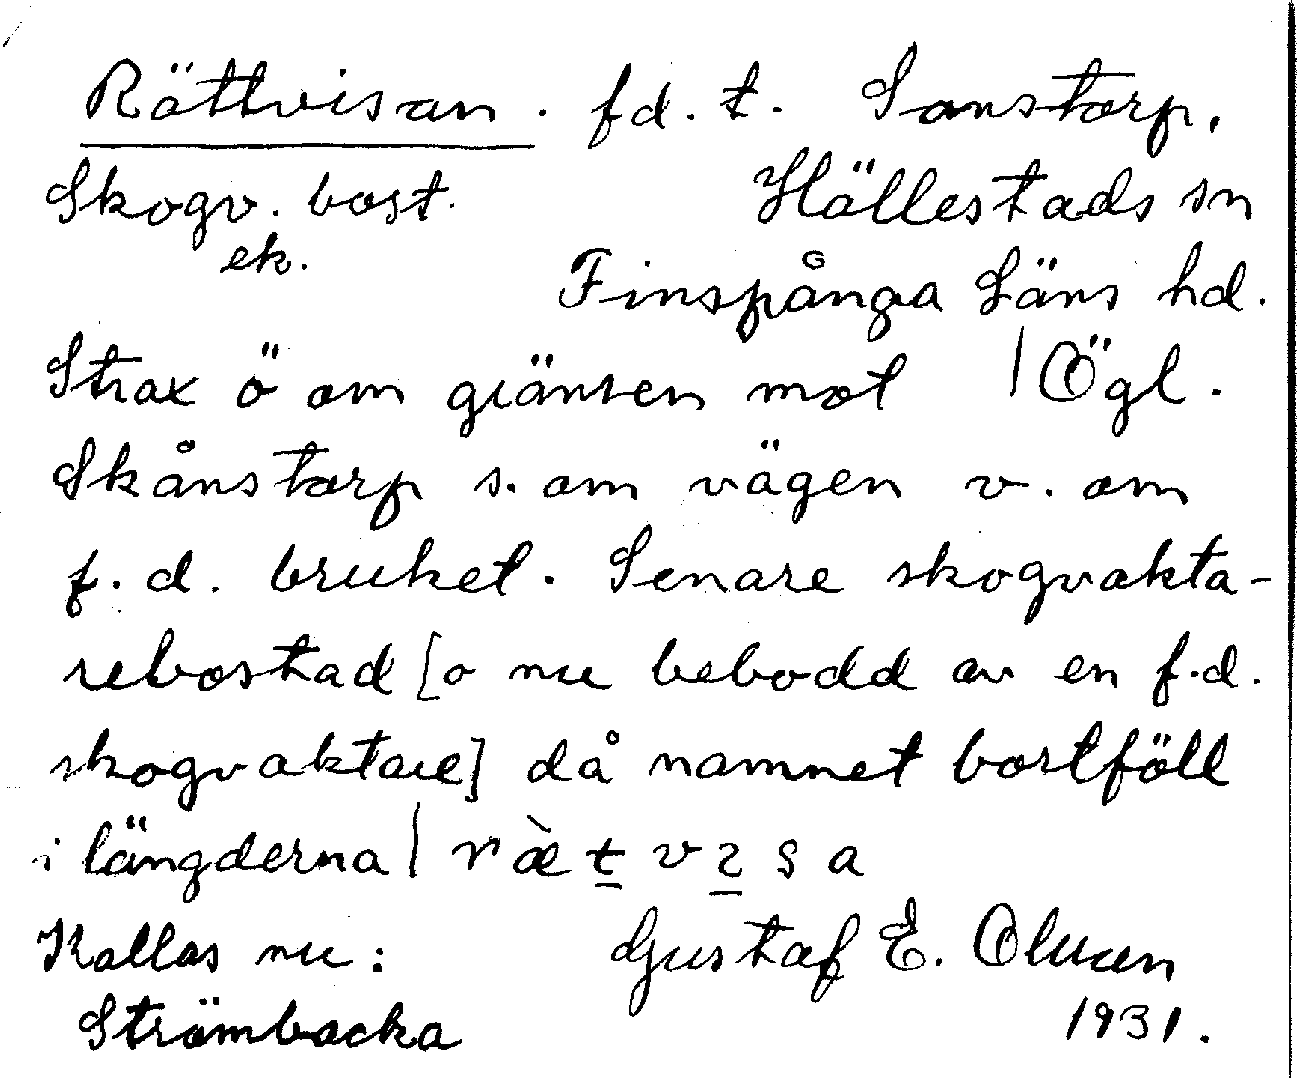 Rättvisan. fd. t. Sonstorp,
Skogv. bost. Hällestads sn
ek. Finspånga Läns hd.
Strax ö om gränsen mot | Ögl.
Skånstorp s. om vägen v. om
f. d. bruket. Senare skogvakta-
rebostad [o nu bebodd av en f.d.
skogvaktare] då namnet bortföll
i längderna | ræ̀t̲vı̲sa
Kallas nu: Gustaf E.
Strömbacka 1931.